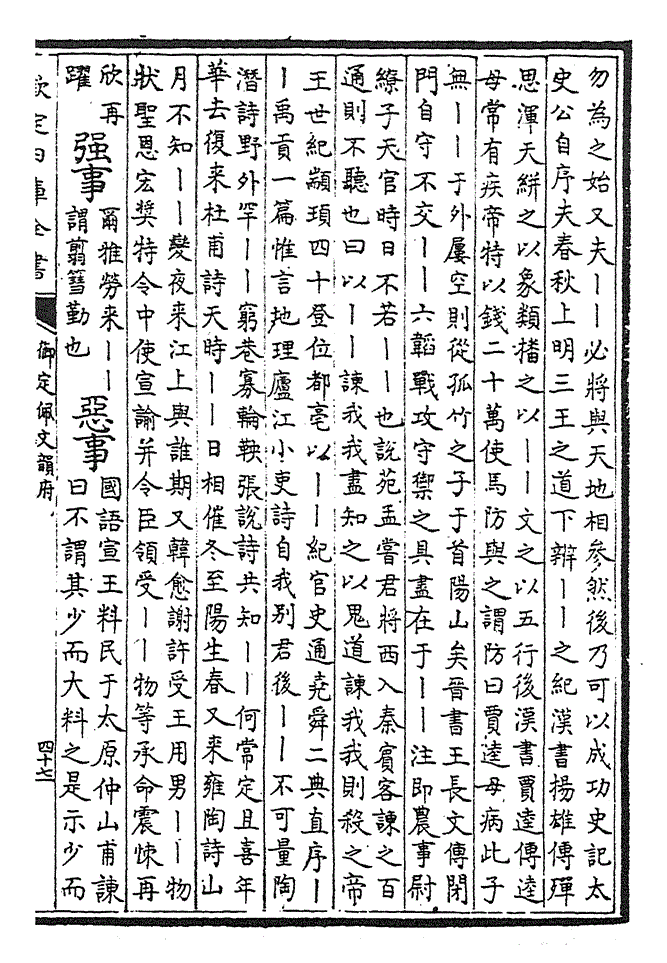 勿為之始又夫丨丨必將與天地相參然後乃可以成功史記太
史公自序夫春秋上明三王之道下辨丨丨之紀漢書揚雄傳殫
思渾天絣之以象類播之以丨丨文之以五行後漢書賈逵傳逵
母常有疾帝特以錢二十萬使馬防與之謂防曰賈逵母病此子
無丨丨于外屢空則從孤竹之子于首陽山矣晉書王長文傳閉
門自守不交丨丨六韜戰攻守禦之具盡在于丨丨注即農事尉
繚子天官時日不若丨丨也說苑孟嘗君將西入秦賓客諫之百
通則不聽也曰以丨丨諫我我盡知之以鬼道諫我我則殺之帝
王世紀顓頊四十登位都亳以丨丨紀官史通堯舜二典直序丨
丨禹貢一篇惟言地理廬江小吏詩自我别君後丨丨不可量陶
潛詩野外罕丨丨窮巷寡輪鞅張說詩共知丨丨何常定且喜年
華去復來杜甫詩天時丨丨日相催冬至陽生春又來雍陶詩山
月不知丨丨變夜來江上與誰期又韓愈謝許受王用男丨丨物
狀聖恩宏奬特令中使宣諭并令臣領受丨丨物等承命震悚再
欣再
躍
强事
爾雅勞來丨丨
謂翦篲勤也
惡事
國語宣王料民于太原仲山甫諫
曰不謂其少而大料之是示少而
欽定四庫全書
御定佩文韻府
四十七